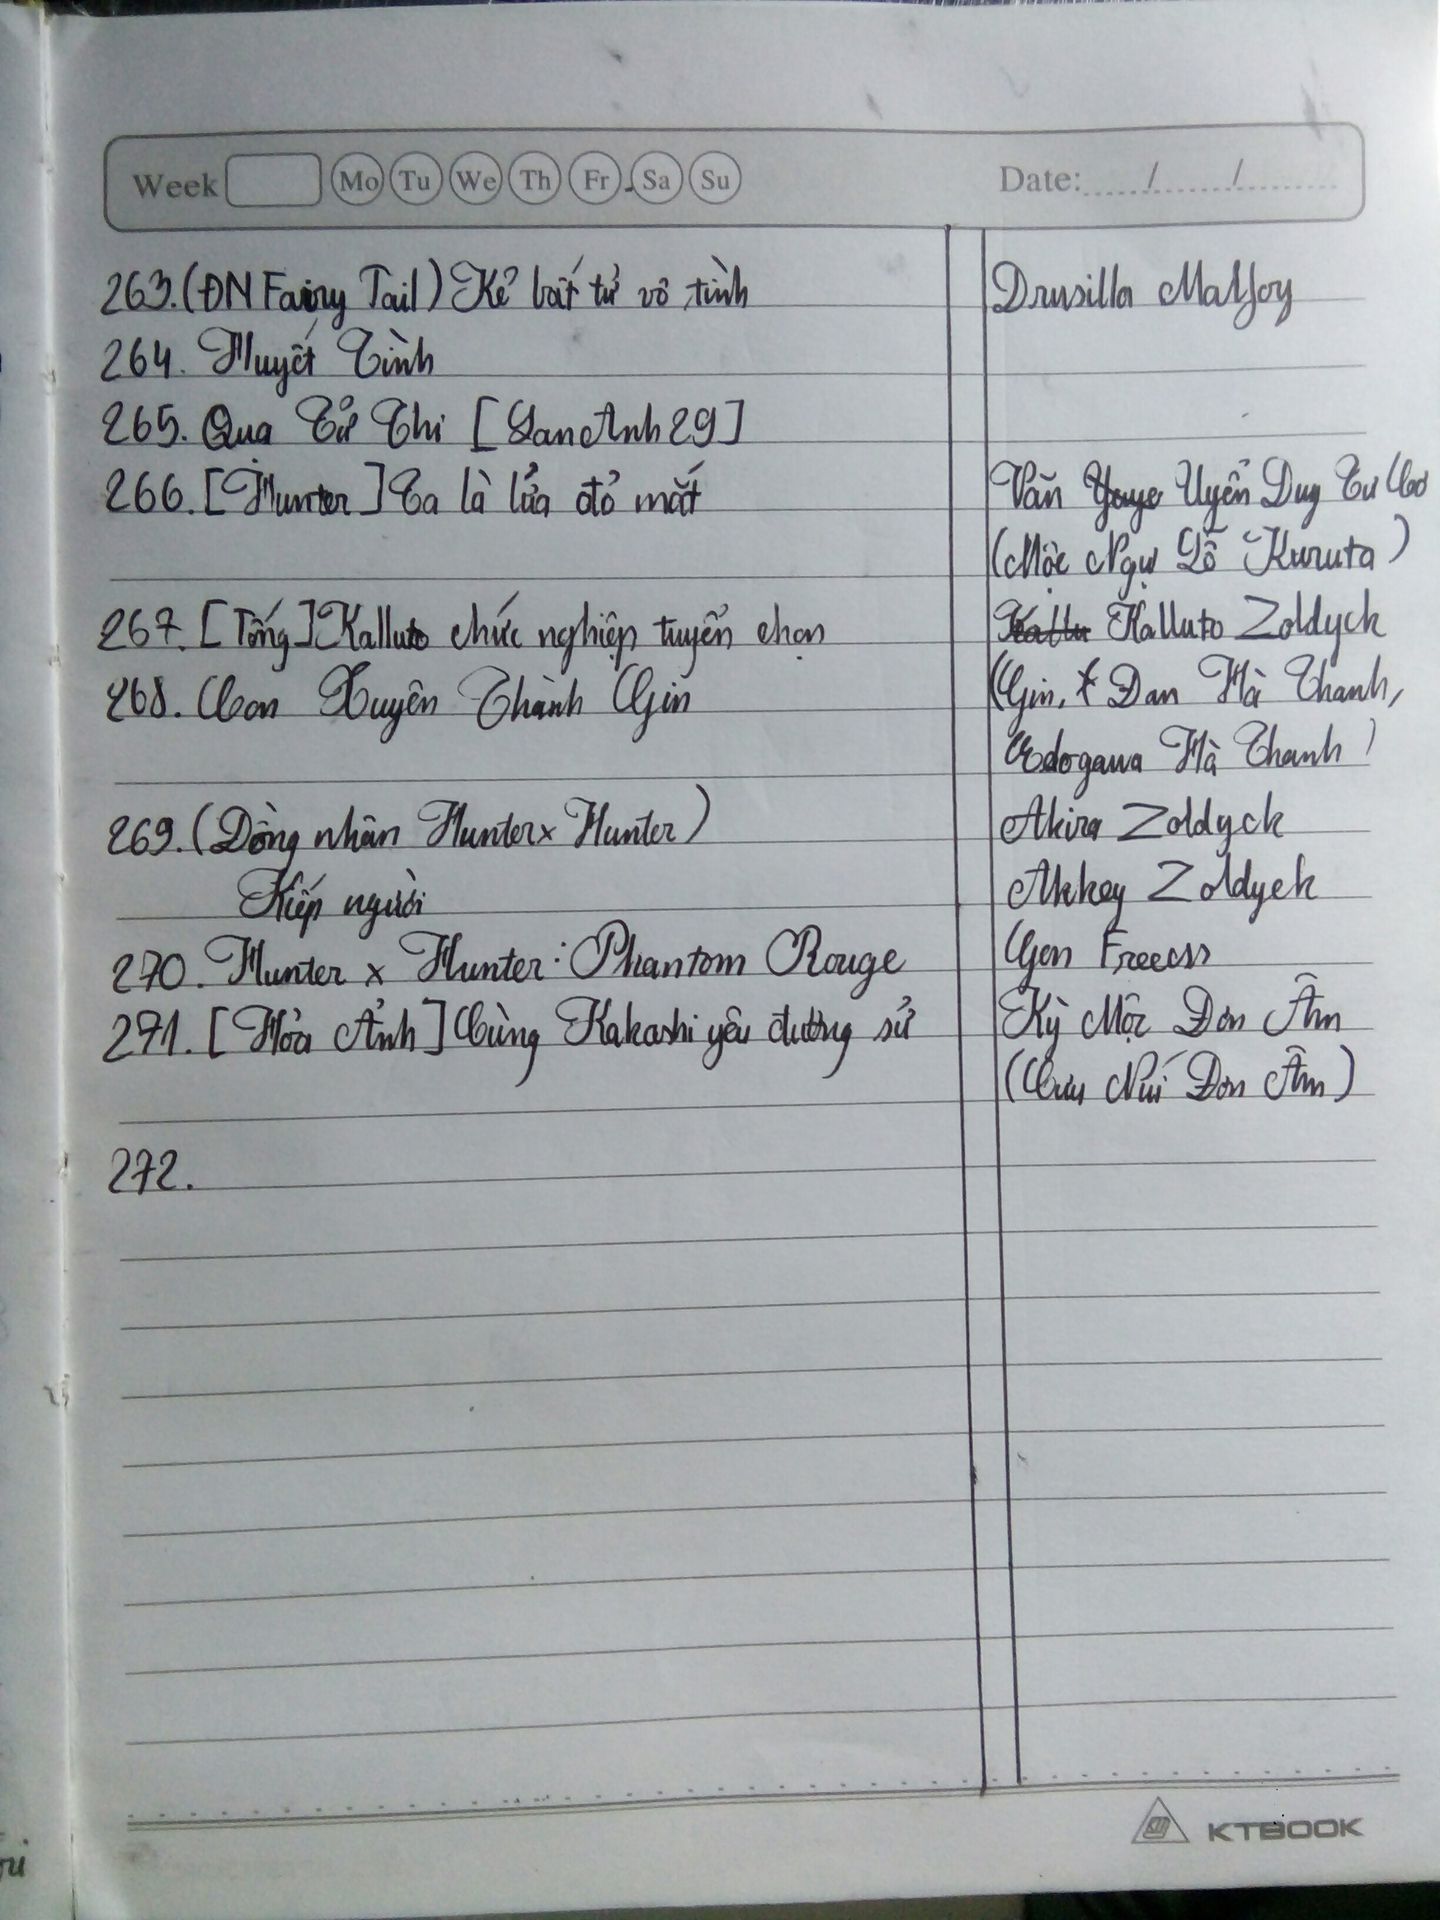 Week Mo Tu We Th Fr Sa Su Date: / /
263. (ĐN Fairy Tail) Kẻ bất tử vô tình Drusilla Malfoy
264. Huyết Tình
265. Quạ Tử Thi [LanAnh29]
266. [Hunter] Ta là lửa đỏ mắt Văn Uyển Duy Tư Cao
(Mộc Ngự Lỗ Kuruta)
267. [Tống] Kalluto chức nghiệp tuyển chọn Kalluto Zoldyck
268. Con Xuyên Thành Gin (Gin, Đan Hà Thanh,
Edogawa Hà Thanh)
269. (Đồng nhân Hunter x Hunter) Akira Zoldyck
Kiếp người Akkey Zoldyck
270. Hunter x Hunter: Phantom Rouge Gon Freecss
271. [Hỏa Ảnh] Cùng Kakashi yêu đương sử Kỳ Mộc Đơn Âm
(Cưu Núi Đơn Âm)
272.
KTBOOK